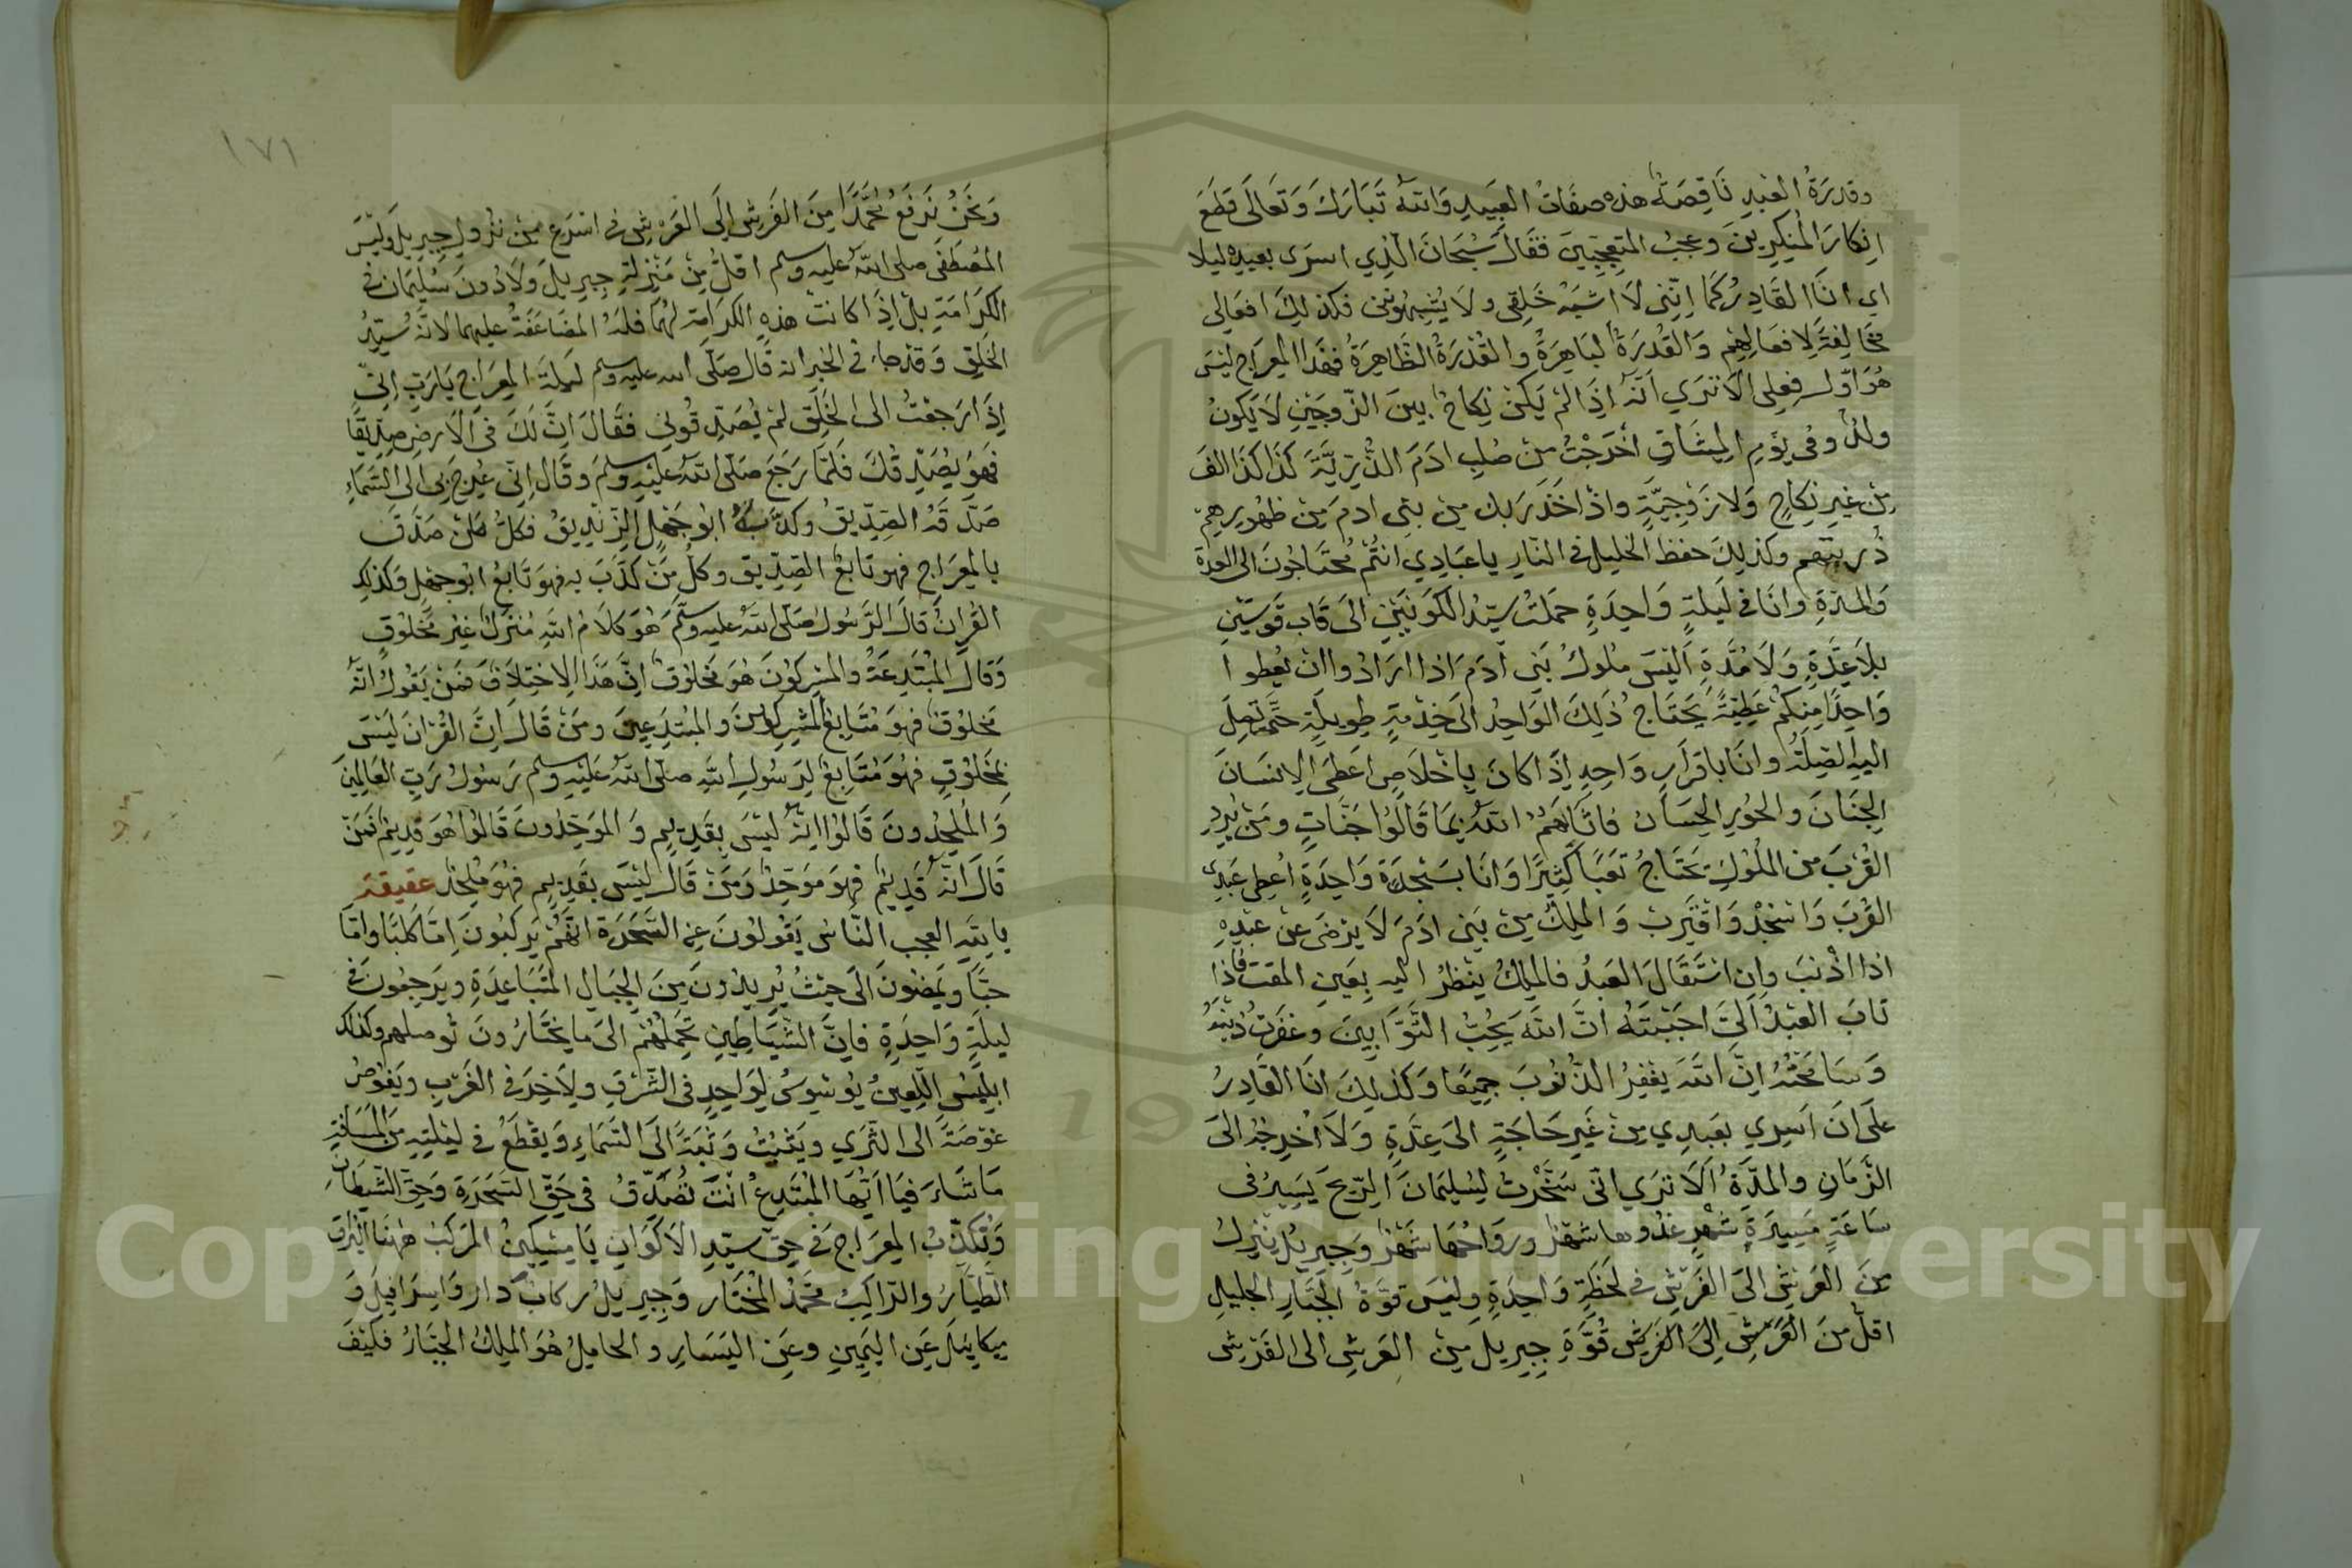 وقدرة العبد ناقصة هذه صفات العبيد والله تبارك وتعالى قطع
انكار المنكرين وعجب المتعجبين فقال سبحان الذي اسرى بعبده ليلا
اي انا القادر كما انني لا اشبه خلقي ولا يشبهونني فكذلك افعالي
مخالفة لافعالهم والقدرة لباهرة والقدرة الظاهرة فهذا المعراج ليس
هو اول فعلى الا ترى انه اذا لم يكن نكاح بين الزوجين لا يكون
ولد وفي يوم الميثاق اخرجت من صلب ادم الذرية كذا كذا الف
من غير نكاح ولا زوجية واذ اخذ ربك من بني ادم من ظهورهم
ذريتهم وكذلك حفظ الخليل في النار يا عبادي انتم محتاجون الى العدة
والمدة وانا في ليلة واحدة حملت سيد الكونين الى قاب قوسين
بلا عدة ولا مدة اليس ملوك بني آدم اذا ارادوا ان يعطوا
واحدا منكم عطية يحتاج ذلك الواحد الى خدمة طويلة حتى تصل
اليه الصلة وانا باقرار واحد اذا كان باخلاص اعطى الانسان
الجنان والحور الحسان فاثابهم الله بما قالوا جنات ومن يرد
القرب من الملوك يحتاج تعبا كثيرا وانا بسجدة واحدة اعطى عبدي
القرب واسجد واقترب والملك من بني ادم لا يرضى عن عبده
اذا اذنب وان استقال العبد فالملك ينظر اليه بعين المقت فاذا
تاب العبد الي احببته ان الله يحب التوابين وغفرت ذنبه
وسامحته ان الله يغفر الذنوب جميعا وكذلك انا القادر
على ان اسري بعبدي من غير حاجة الى عدة ولا اخرجه الى
الزمان والمدة الا ترى اني سخرت لسليمان الريح يسير في
ساعة مسيرة شهر غدوها شهر ورواحها شهر وجبريل ينزل
من العرش الى الفرش في لحظة واحدة وليس قوة الجبار الجليل
اقل من العرش الى الفرش قوة جبريل من العرش الى الفرش
١٧١
ونحن نرفع محمدا من الفرش الى العرش في اسرع من نزول جبريل وليس
المصطفى صلى الله عليه وسلم اقل من منزلة جبريل ولا دون سليمان في
الكرامة بل اذا كانت هذه الكرامة لهما فله المضاعفة عليهما لانه سيد
الخلق وقد جاء في الخبر انه قال صلى الله عليه وسلم ليلة المعراج يا رب اني
اذا رجعت الى الخلق لم يصدقوني فقال ان لك في الارض صديقا
فهو يصدقك فلما رجع صلى الله عليه وسلم وقال اني عرج بي الى السماء
صدقه الصديق وكذبه ابو جهل الزنديق فكل من صدق
بالمعراج فهو تابع الصديق وكل من كذب به فهو تابع ابو جهل وكذلك
القران قال الرسول صلى الله عليه وسلم هو كلام الله منزل غير مخلوق
وقال المبتدعة والمشركون هو مخلوق ان هذا الاختلاق فمن يقول انه
مخلوق فهو متابع المشركون والمبتدعين ومن قال ان القران ليس
بمخلوق فهو متابع لرسول الله صلى الله عليه وسلم رسول رب العالمين
والملحدون قالوا انه ليس بقديم والموحدون قالوا هو قديم فمن
قال انه قديم فهو موحد ومن قال ليس بقديم فهو ملحد عقيقة
يا لله العجب الناس يقولون عن السحرة انهم يركبون اما كلبا واما
حبا ويمضون الى حيث يريدون من الجبال المتباعدة ويرجعون في
ليلة واحدة فان الشياطين تحملهم الى ما يختارون توصلهم وكذلك
ابليس اللعين يوسوس لواحد في الشرق ولاخر في الغرب ويغوص
غوصة الى الثرى ويثب وثبة الى السماء ويقطع في ليلته من المسافة
ما شاء فيا ايها المبتدع انت تصدق في حق السحرة وحق الشيطان
وتكذب المعراج في حق سيد الاكوان يا مسكين المركب ههنا البراق
الطيار والراكب محمد المختار وجبريل ركاب دار واسرافيل و
ميكاييل عن اليمين وعن اليسار والحامل هو الملك الجبار فكيف
Copyright © King Saud University